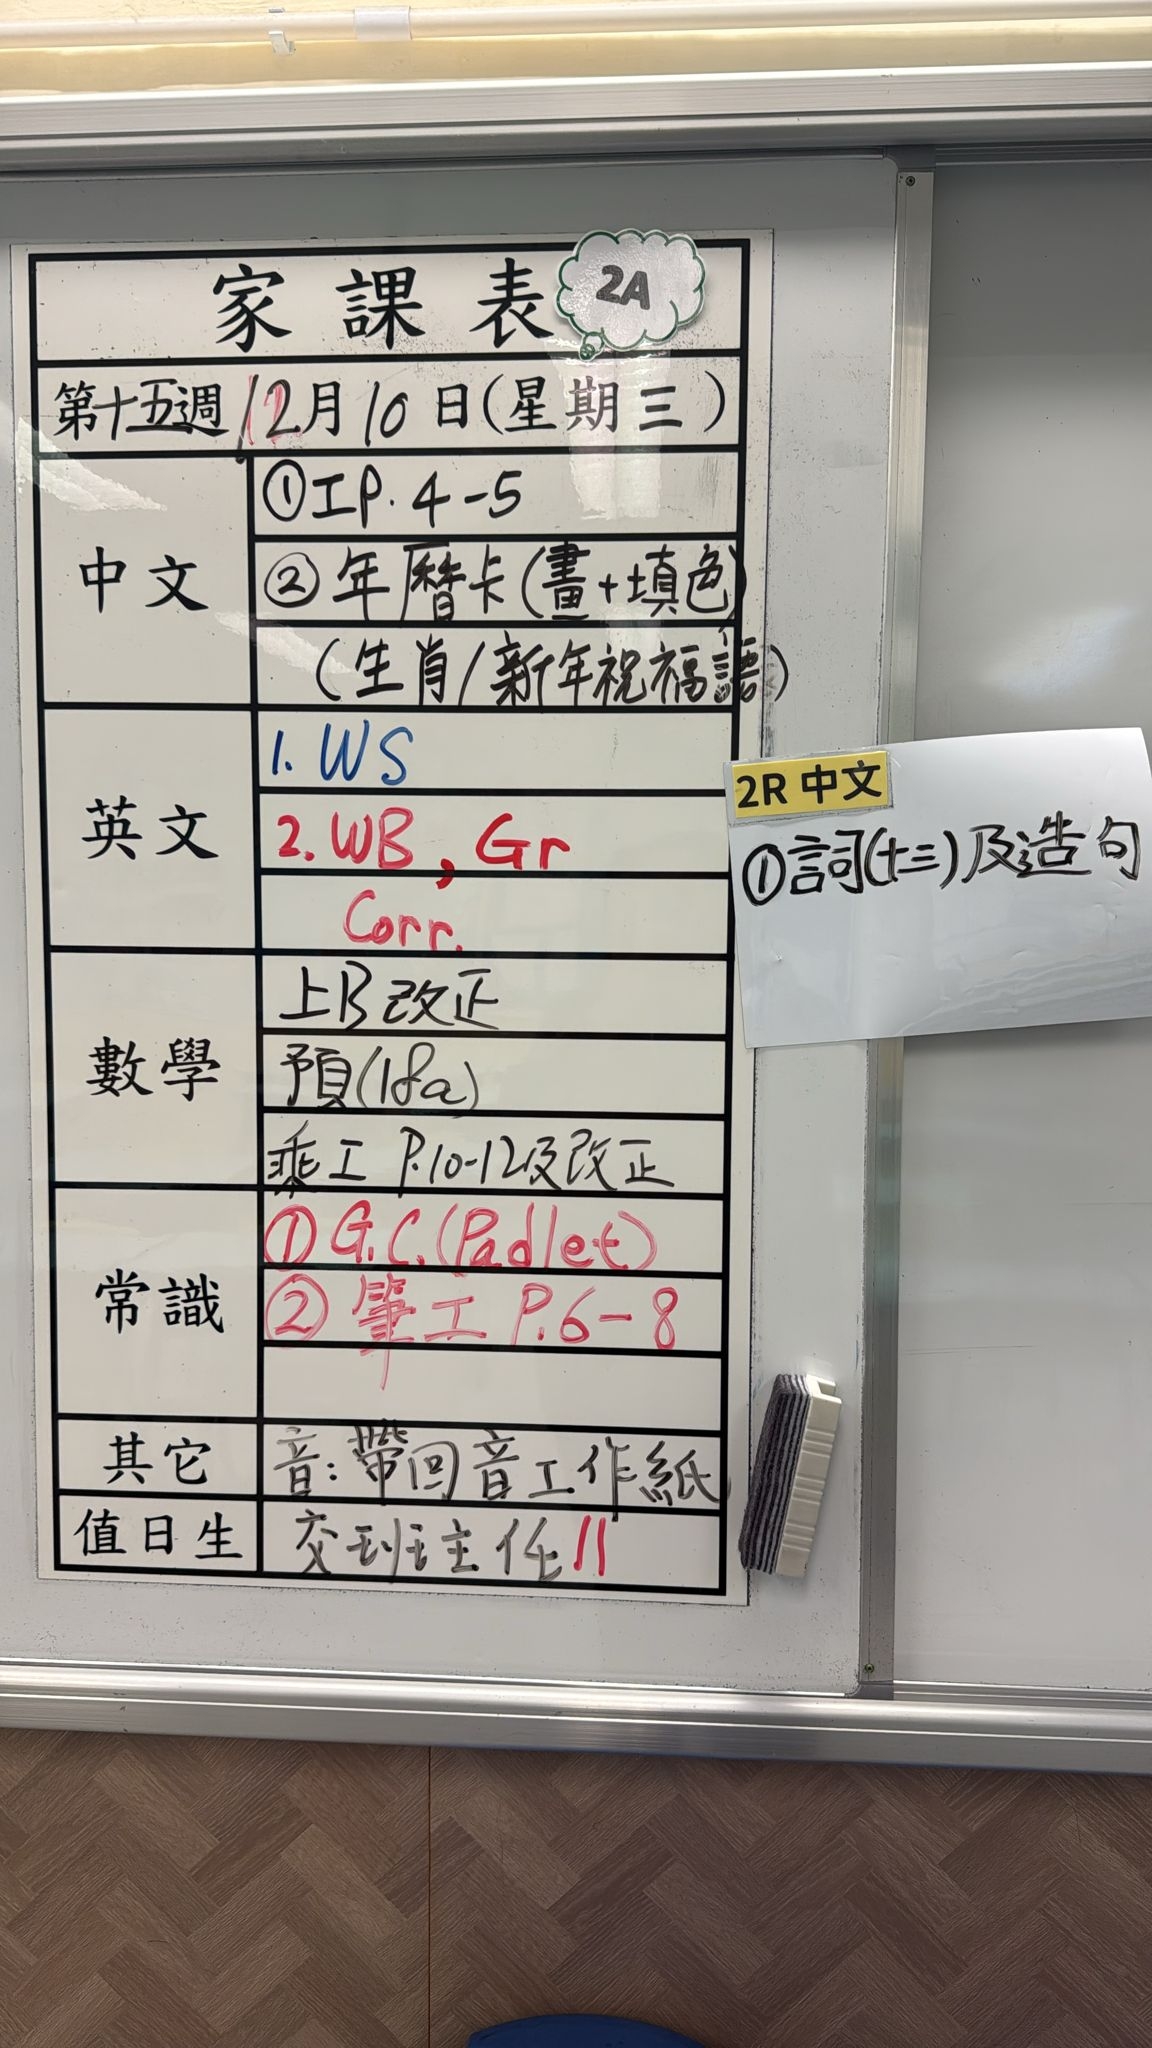 家課表
2A
第十五週 12月10日(星期三)
中文
①工P.4-5
②年曆卡(畫+填色)
(生肖/新年祝福語)
英文
1. WS
2. WB, Gr
Corr.
數學
上B改正
預(18a)
乘工 P.10-12及改正
常識
①G.C.(Padlet)
②筆工 P.6-8
其它
音:帶回音工作紙
值日生
交班主任!!
2R 中文
①詞(十三)及造句